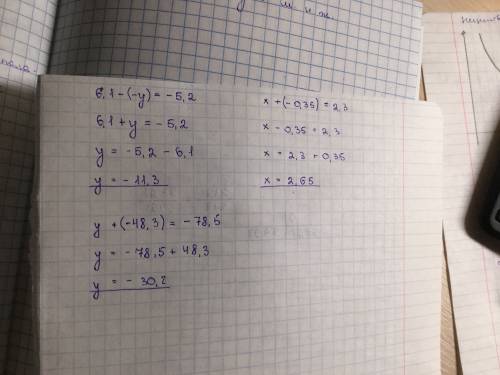 6,1-(-y) = -5,2
6,1 + y = -5,2
y = -5,2 - 6,1
y = -11,3
y +(-48,3) = -78,5
y = -78,5 + 48,3
y = -30,2
x +(-0,35) = 2,3
x - 0,35 = 2,3
x = 2,3 + 0,35
x = 2,65